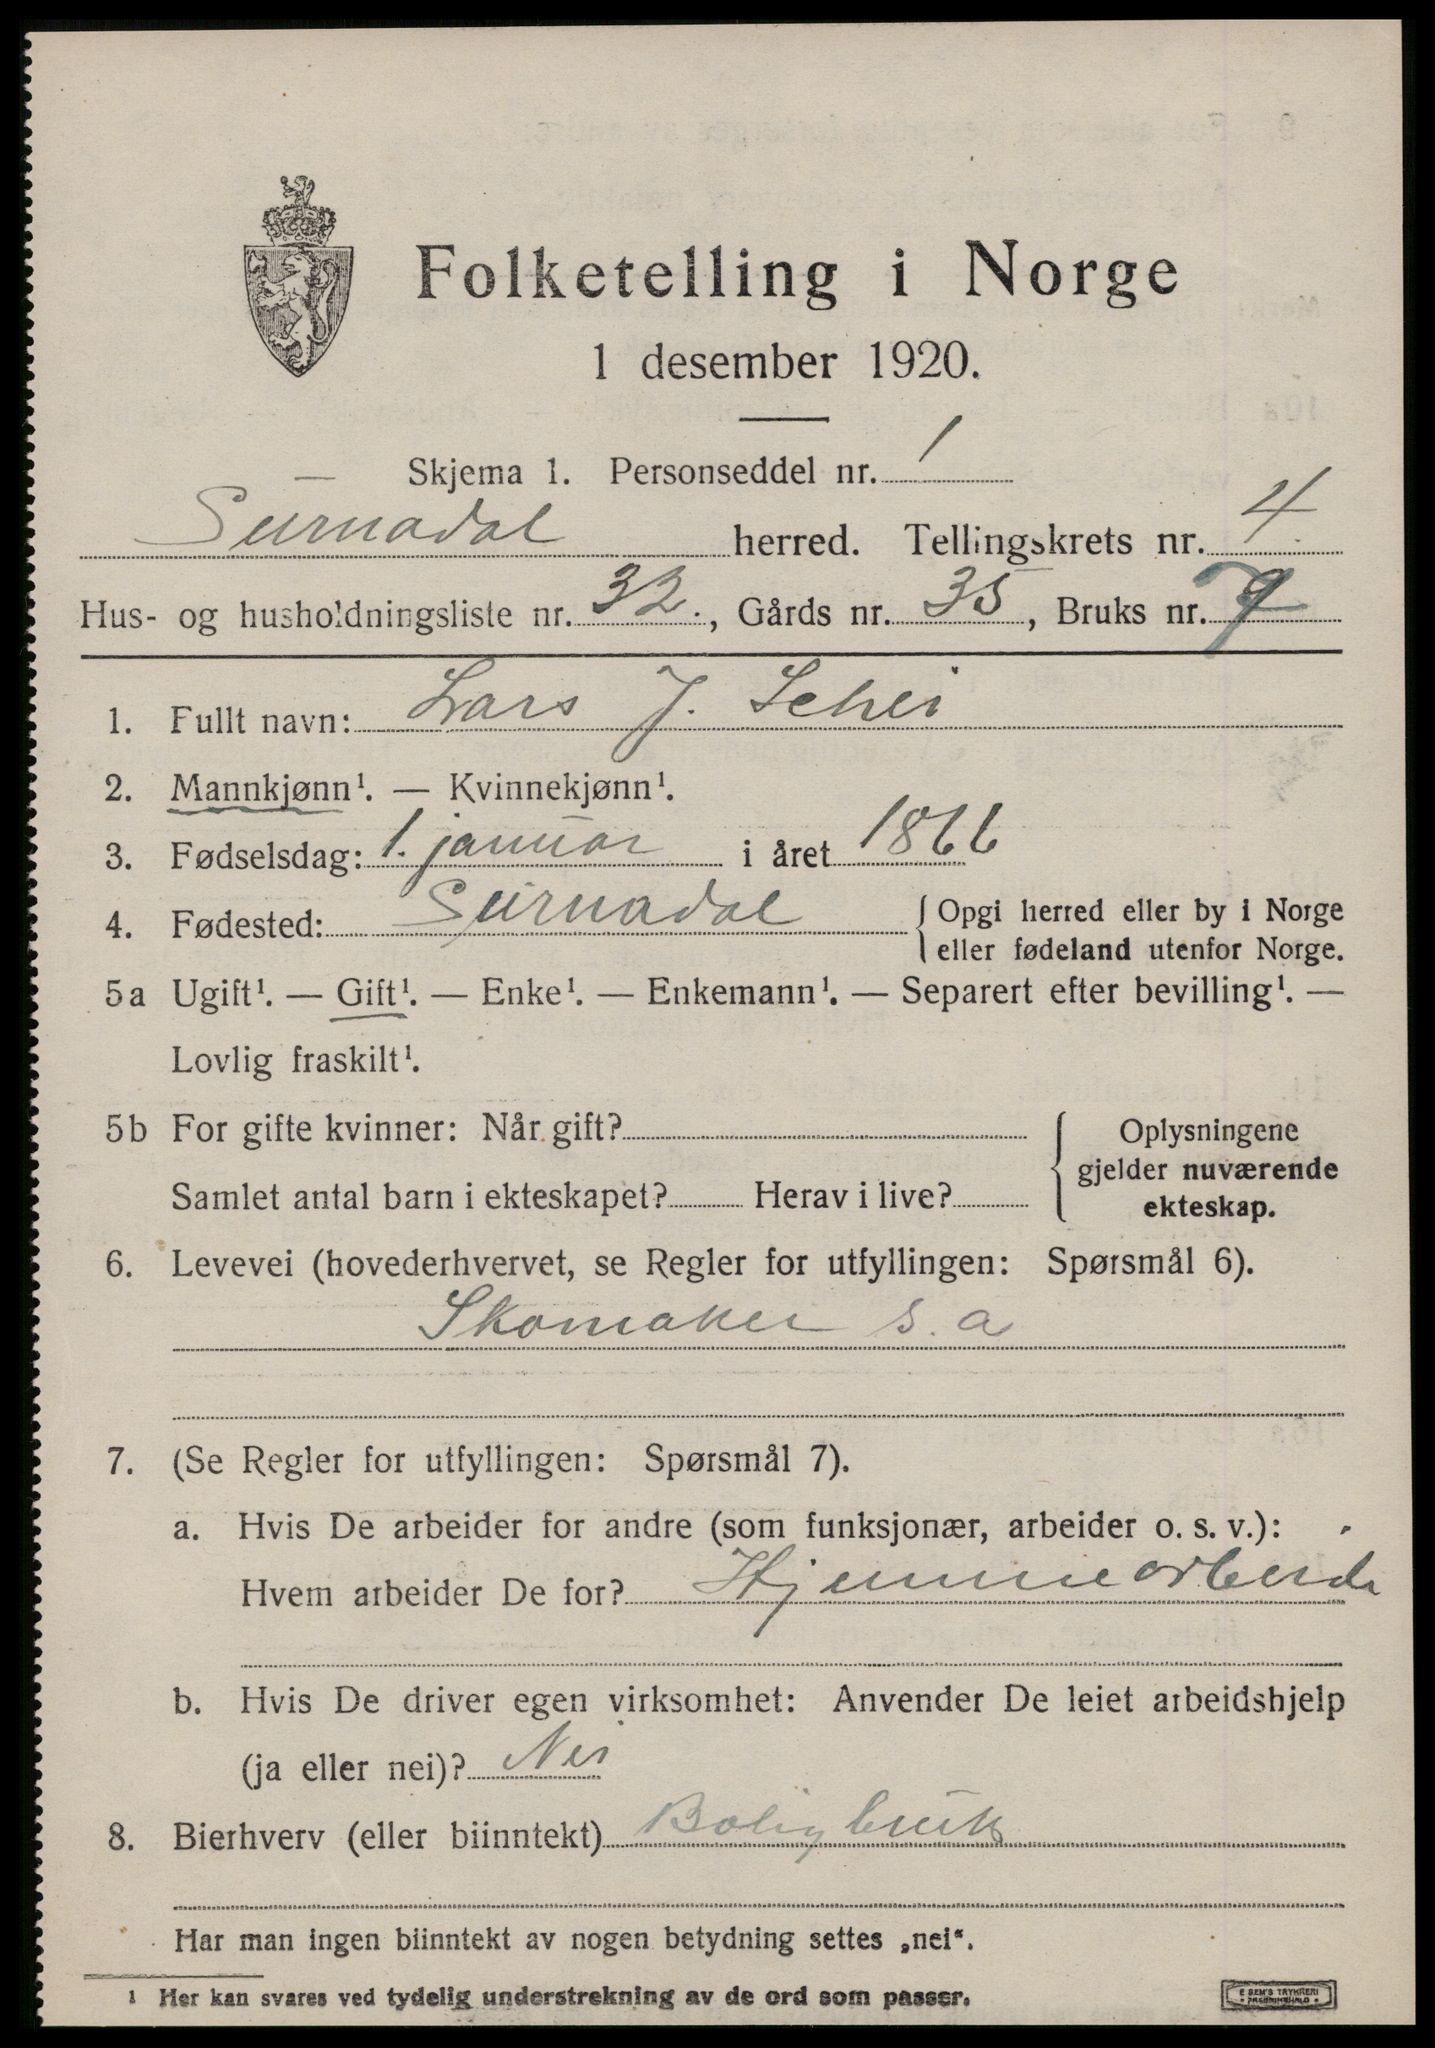 Folketelling i Norge
1 desember 1920.
Skjema 1. Personseddel nr. 1
Surnadal herred. Tellingskrets nr. 4
Hus- og husholdningsliste nr. 32., Gårds nr. 35, Bruks nr.
1. Fullt navn: Lars J. Schei
2. Mannkjønn¹. — Kvinnekjønn¹.
3. Fødselsdag: 1. januar i året 1866
4. Fødested: Surnadal { Opgi herred eller by i Norge
eller fødeland utenfor Norge.
5a Ugift¹. — Gift¹. — Enke¹. — Enkemann¹. — Separert efter bevilling¹. —
Lovlig fraskilt¹.
5b For gifte kvinner: Når gift?
Samlet antal barn i ekteskapet? Herav i live?
{ Oplysningene
gjelder nuværende
ekteskap.
6. Levevei (hovederhvervet, se Regler for utfyllingen: Spørsmål 6).
Skomaker s. a
7. (Se Regler for utfyllingen: Spørsmål 7).
a. Hvis De arbeider for andre (som funksjonær, arbeider o. s. v.):
Hvem arbeider De for?
b. Hvis De driver egen virksomhet: Anvender De leiet arbeidshjelp
(ja eller nei)? Nei
8. Bierhverv (eller biinntekt) Boligbruk
Har man ingen biinntekt av nogen betydning settes „nei“.
1 Her kan svares ved tydelig understrekning av de ord som passer.
E SEM'S TRYKKERI
• FREDRIKSHALD •